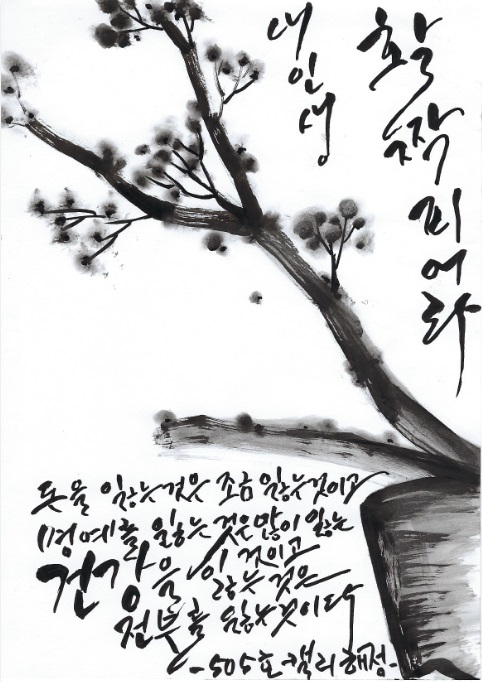 내인생
활짝피어라
돈을 잃는것은 조금 잃는것이고
명예를 잃는 것은 많이 잃는
것이고
건강을 잃는 것은
전부를 잃는것이다
-505호 캘리해정-